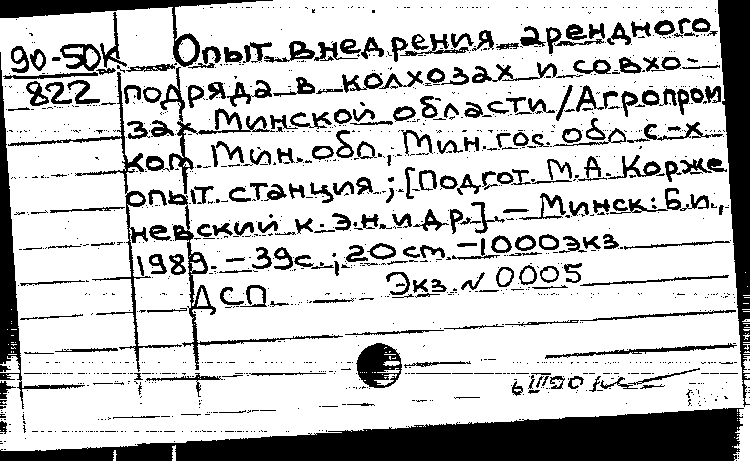 90-50К Опыт внедрения арендного
822 подряда в колхозах и совхо-
зах Минской области / Агропром
ком. Мин. обл., Мин. гос. обл. с-х
опыт. станция; [Подгот. М.А. Корже
невский к.э.н. и др.]. — Минск: Б.и.,
1989. – 39с.; 20 cm. – 1000 экз
ДСП. Экз. N 0005
6 III 90